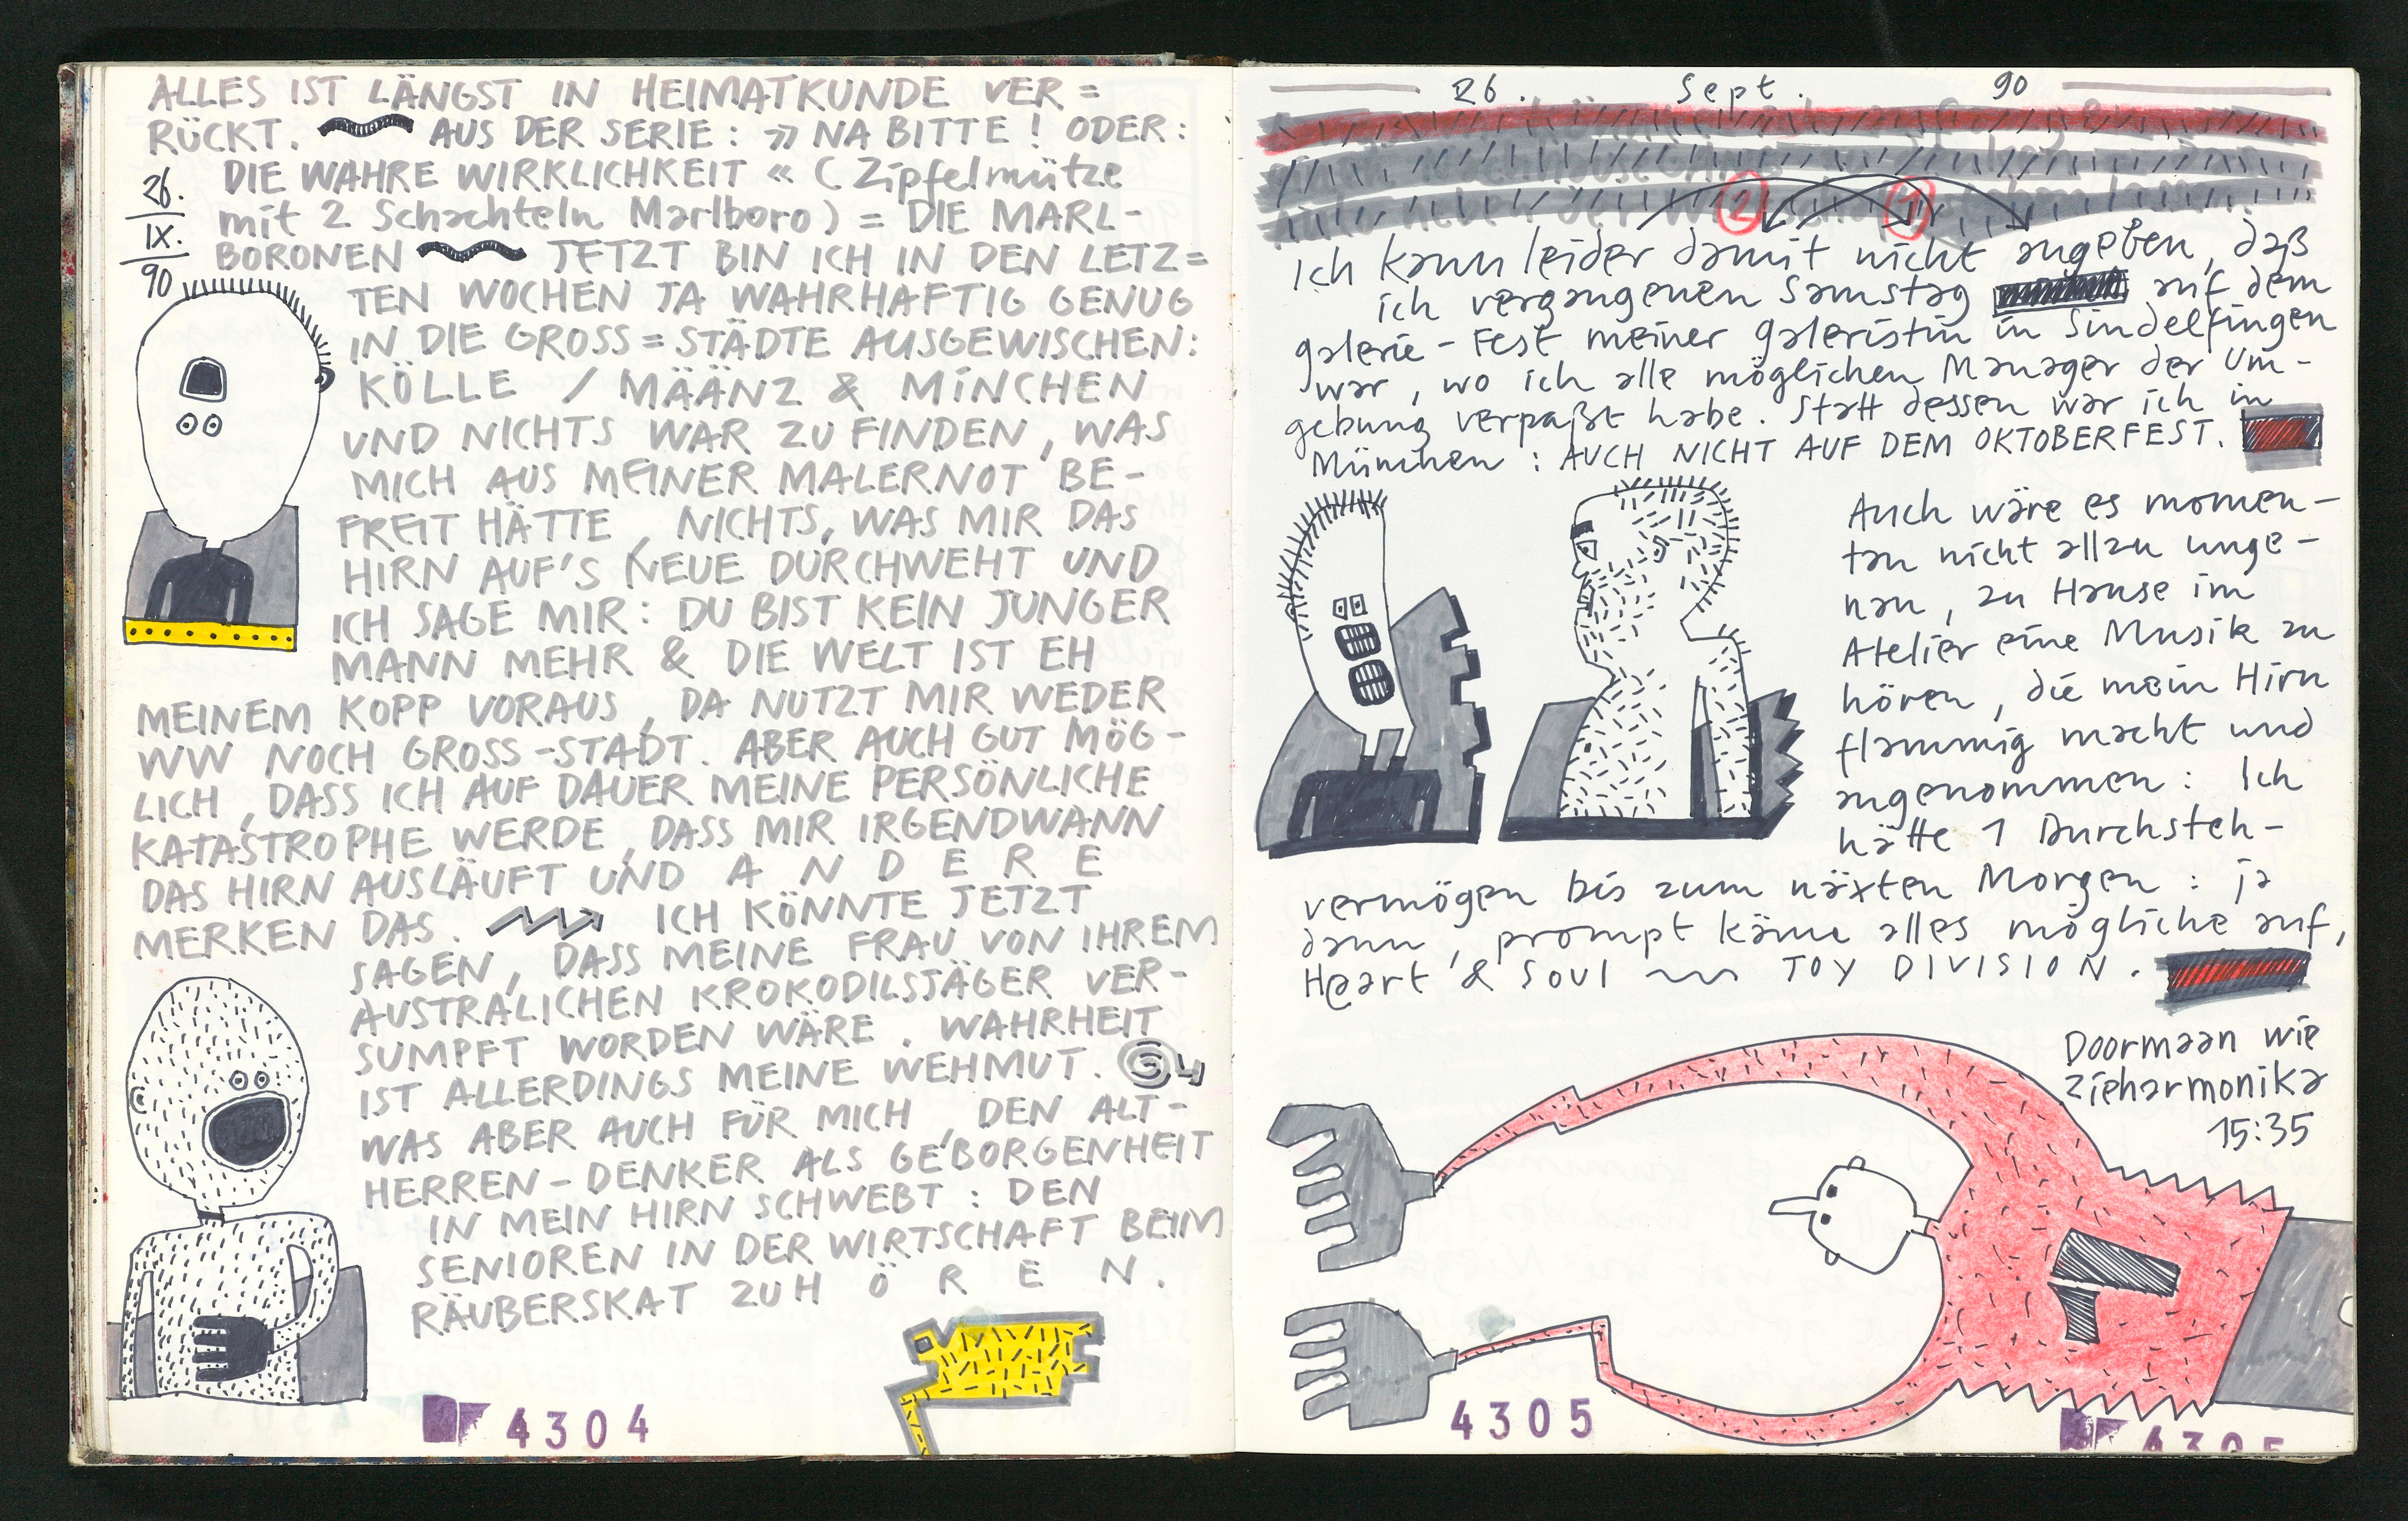 ALLES IST LÄNGST IN HEIMATKUNDE VER=
RÜCKT. AUS DER SERIE: » NA BITTE! ODER:
DIE WAHRE WIRKLICHKEIT « (Zipfelmütze
mit 2 Schachteln Marlboro) = DIE MARL-
BORONEN JETZT BIN ICH IN DEN LETZ=
26.
IX.
90
TEN WOCHEN JA WAHRHAFTIG GENUG
IN DIE GROSS=STÄDTE AUSGEWISCHEN:
KÖLLE / MÄÄNZ & MINCHEN
UND NICHTS WAR ZU FINDEN, WAS
MICH AUS MEINER MALERNOT BE-
FREIT HÄTTE, NICHTS, WAS MIR DAS
HIRN AUF'S NEUE DURCHWEHT UND
ICH SAGE MIR: DU BIST KEIN JUNGER
MANN MEHR & DIE WELT IST EH
MEINEM KOPP VORAUS, DA NUTZT MIR WEDER
WW NOCH GROSS-STADT. ABER AUCH GUT MÖG-
LICH, DASS ICH AUF DAUER MEINE PERSÖNLICHE
KATASTROPHE WERDE, DASS MIR IRGENDWANN
DAS HIRN AUSLÄUFT UND A N D E R E
MERKEN DAS. ICH KÖNNTE JETZT
SAGEN, DASS MEINE FRAU VON IHREM
AUSTRALICHEN KROKODILSJÄGER VER-
SUMPFT WORDEN WÄRE. WAHRHEIT
IST ALLERDINGS MEINE WEHMUT.
WAS ABER AUCH FÜR MICH, DEN ALT-
HERREN-DENKER ALS GEBORGENHEIT
IN MEIN HIRN SCHWEBT: DEN
SENIOREN IN DER WIRTSCHAFT BEIM
RÄUBERSKAT ZUH Ö R E N.
4304
26. Sept. 90
2 1
Ich kann leider damit nicht angeben, daß
ich vergangenen Samstag auf dem
Galerie-Fest meiner Galeristin in Sindelfingen
war, wo ich alle möglichen Manager der Um-
gebung verpaßt habe. Statt dessen war ich in
München: AUCH NICHT AUF DEM OKTOBERFEST.
Auch wäre es momen-
tan nicht allzu unge-
nau, zu Hause im
Atelier eine Musik zu
hören, die mein Hirn
flammig macht und
angenommen: Ich
hätte 1 Durchsteh-
vermögen bis zum näxten Morgen: ja
dann, prompt käme alles mögliche auf,
Heart & Soul TOY DIVISION.
Doormaan wie
Zieharmonika
15:35
4305
4305